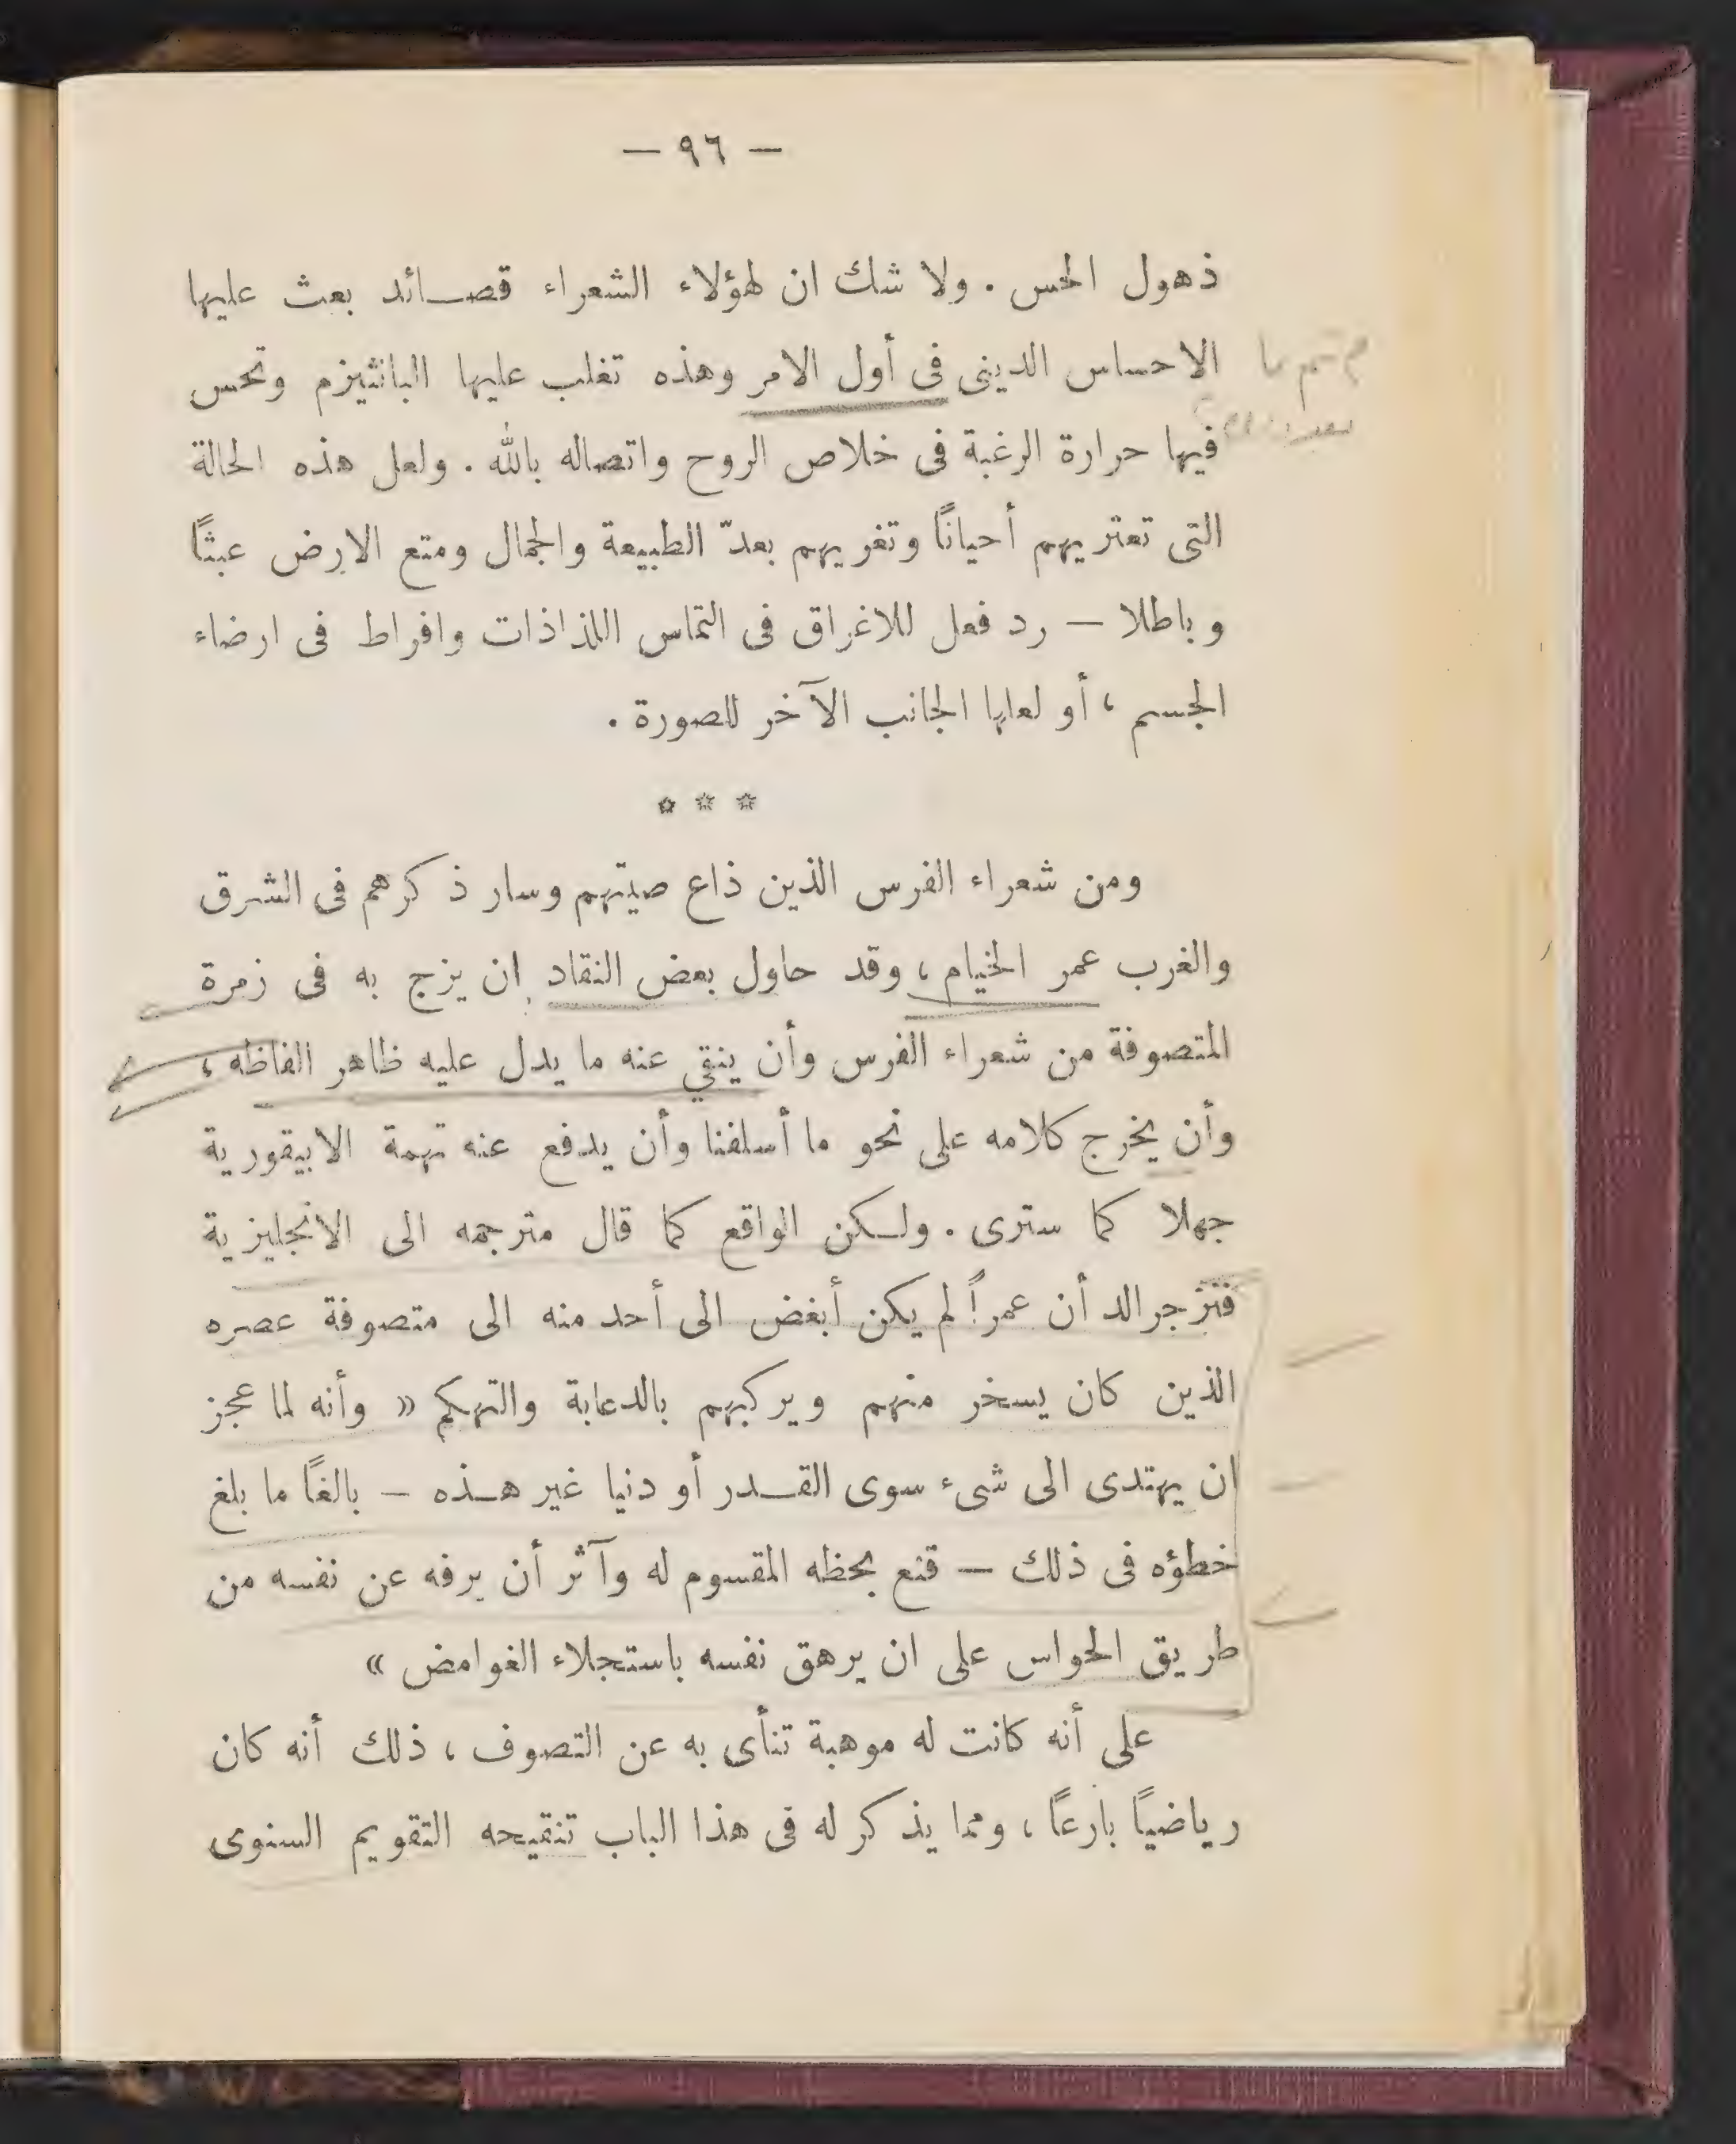 — ٩٦ —
ذهول الحس . ولا شك ان لهؤلاء الشعراء قصـائد بعث عليها
الاحساس الدينى فى أول الامر وهذه تغلب عليها البانثيزم وتحس
فيها حرارة الرغبة فى خلاص الروح واتصاله بالله . ولعل هذه الحالة
التى تعتريهم أحيانًا وتغريهم بعدّ الطبيعة والجمال ومتع الارض عبثًا
وباطلا — رد فعل للاغراق فى التماس اللذاذات وافراط فى ارضاء
الجسم ، أو لعلها الجانب الآخر للصورة .
* * *
ومن شعراء الفرس الذين ذاع صيتهم وسار ذكرهم فى الشرق
والغرب عمر الخيام ، وقد حاول بعض النقاد ان يزج به فى زمرة
المتصوفة من شعراء الفرس وأن ينفي عنه ما يدل عليه ظاهر الفاظه ،
وأن يخرج كلامه على نحو ما أسلفنا وأن يدفع عنه تهمة الابيقورية
جهلا كما سترى . ولـكن الواقع كما قال مترجمه الى الانجليزية
فتزجرالد أن عمراً لم يكن أبغض الى أحد منه الى متصوفة عصره
الذين كان يسخر منهم ويركبهم بالدعابة والتهكم « وأنه لما عجز
ان يهتدى الى شىء سوى القـدر أو دنيا غير هـذه — بالغًا ما بلغ
خطؤه فى ذلك — قنع بحظه المقسوم له وآثر أن يرفه عن نفسه من
طريق الحواس على ان يرهق نفسه باستجلاء الغوامض »
على أنه كانت له موهبة تنأى به عن التصوف ، ذلك أنه كان
رياضيًا بارعًا ، ومما يذكر له فى هذا الباب تنقيحه التقويم السنوى